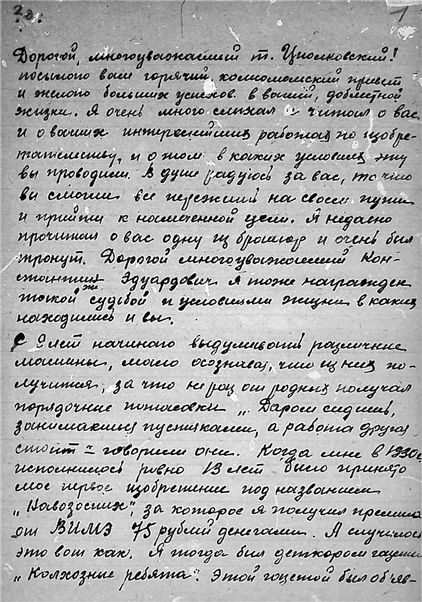 23. 1
Дорогой, многоуважаемый т. Циолковский!
посылаю вам горячий, комсомольский привет
и желаю больших успехов в вашей, доблестной
жизни. Я очень много слыхал и читал о вас
и о ваших интереснейших работах по изобре-
тательству, и о том в каких условиях эту
вы проводили. В душе радуюсь за вас, то что
вы смогли все пережить на своем пути
и прийти к намеченной цели. Я недавно
прочитал о вас одну из брошюр и очень был
тронут. Дорогой многоуважаемый Кон-
стантин Эдуардович я тоже награжден
такой же судьбой и условиями жизни в каких
находились и вы.
С 9 лет начинаю выдумывать различные
машины, мало осознавая, что из них по-
лучится, за что не раз от родных получал
порядочные потасовки „Даром сидишь,
занимаешься пустяками, а работа другая
стоит" – говорили они. Когда мне в 1930 г.
исполнилось ровно 13 лет было принято
мое первое изобретение под названием
„Навозостик", за которое я получил премию
от ВИМЭ 75 рублей деньгами. А случилось
это вот как. Я тогда был деткором газеты
„Колхозные ребята". Этой газетой был объяв-